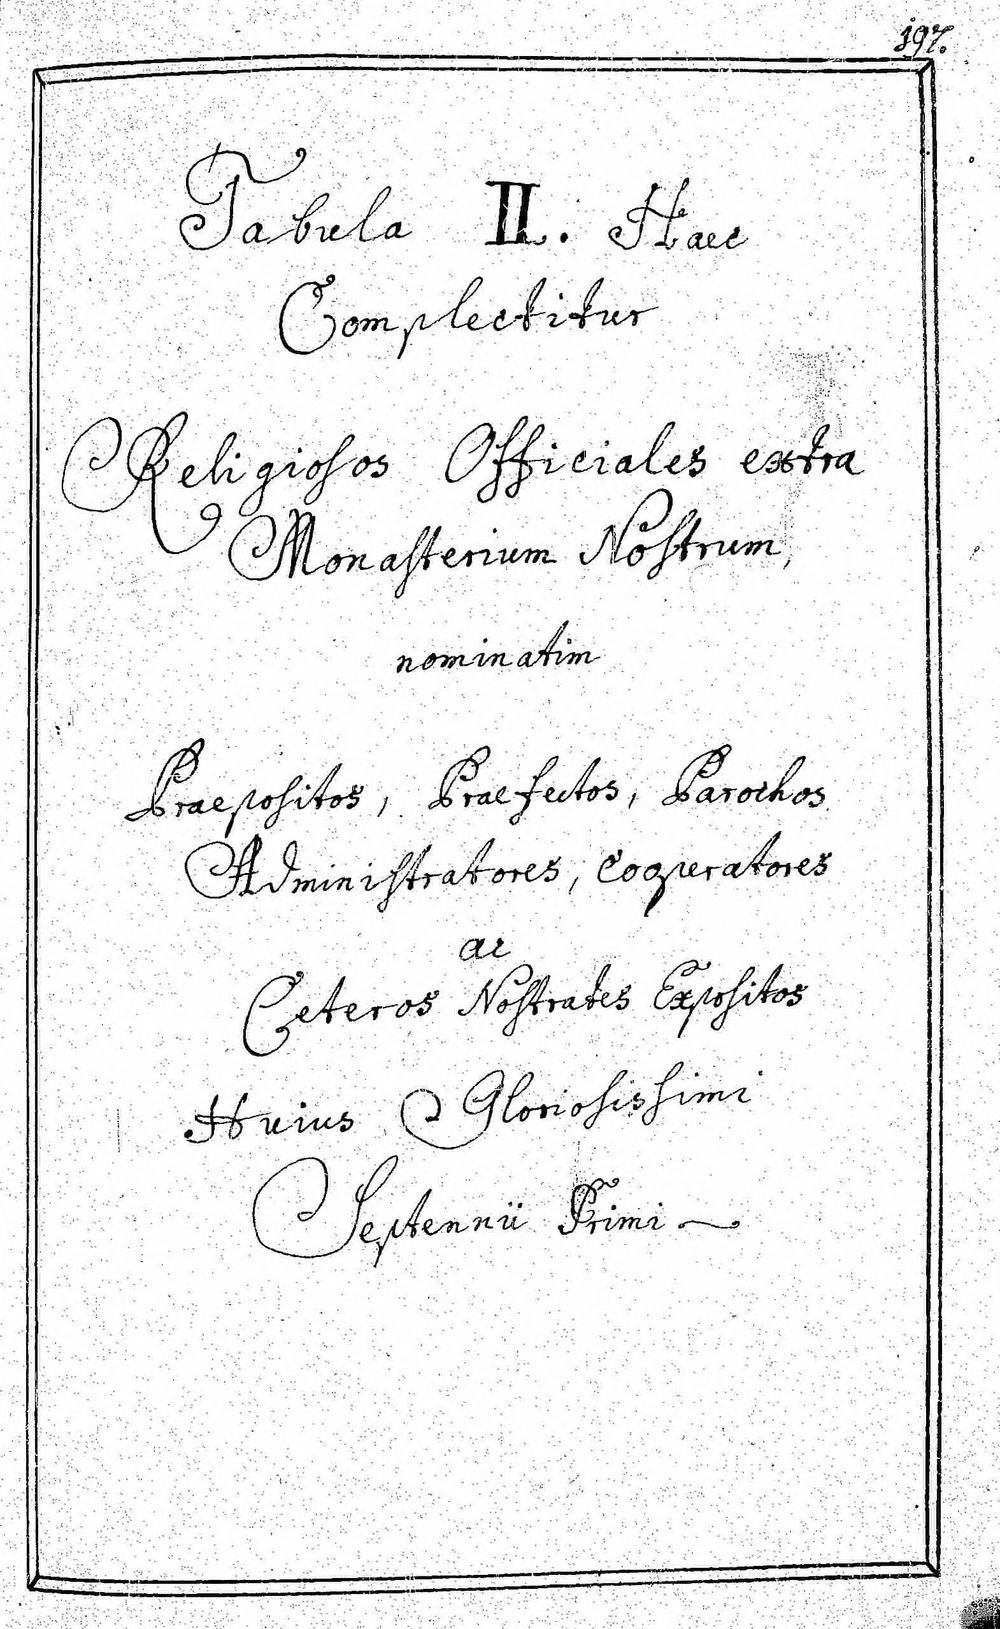 197.
Tabula II. Haec
Complectitur
Religiosos Officiales extra
Monasterium Nostrum,
nominatim
Praepositos, Praefectos, Parochos
Administratores, cooperatores
ac
Ceteros Nostrates Expositos
Huius Gloriosissimi
Septennii Primi